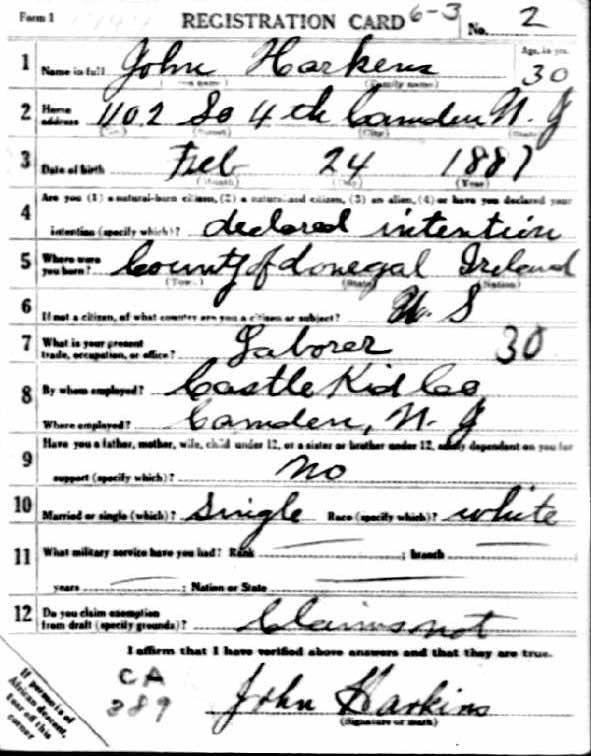 Form 1 REGISTRATION CARD 6-3 No. 2
1 Name in full John Harkens Age, in yrs. 30
(Family name)
2 Home address 1102 So 4th Camden N. J
(No.) (Street) (City) (State)
3 Date of birth Feb 24 1887
(Month) (Day) (Year)
4 Are you (1) a natural-born citizen, (2) a naturalized citizen, (3) an alien, (4) or have you declared your
intention (specify which)? declared intention
5 Where were you born? County of donegal Ireland
(Town) (State) (Nation)
6 If not a citizen, of what country are you a citizen or subject? U. S
7 What is your present trade, occupation, or office? Laborer 30
8 By whom employed? Castle Kid Co
Where employed? Camden, N. J
9 Have you a father, mother, wife, child under 12, or a sister or brother under 12, solely dependent on you for
support (specify which)? no
10 Married or single (which)? Single Race (specify which)? white
11 What military service have you had? Rank ; branch
years ; Nation or State
12 Do you claim exemption from draft (specify grounds)? Claims not
I affirm that I have verified above answers and that they are true.
CA
389
John Harkins
(Signature or mark)
If person is of
African descent,
tear off this
corner